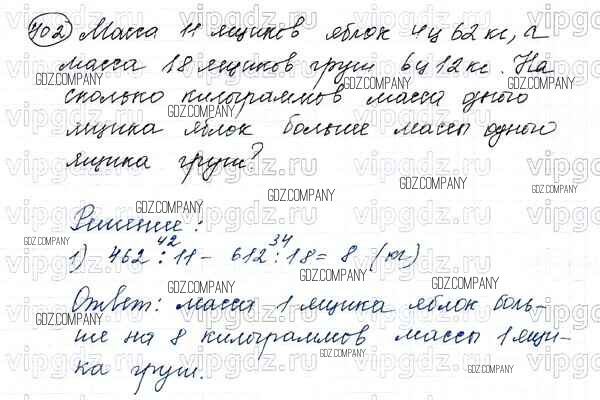 402) Масса 11 ящиков яблок 4ц 62 кг, а
масса 18 ящиков груш 6ц 12 кг. На
сколько килограммов масса одного
ящика яблок больше массы одного
ящика груш?
Решение:
42 34
1) 462 : 11 - 612 : 18 = 8 (кг)
Ответ: масса 1 ящика яблок боль-
ше на 8 килограммов массы 1 ящи-
ка груш.
vipgdz.ru
GDZ.COMPANY